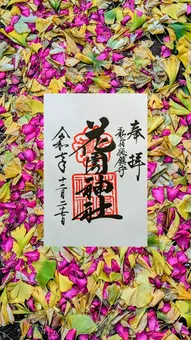 奉拝
新宿総鎮守
花園神社
令和七年十二月二十七日